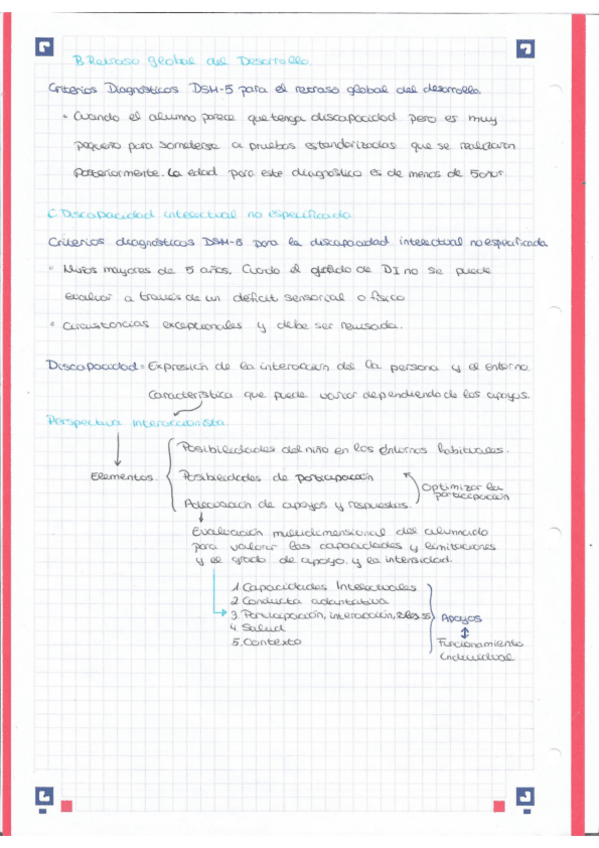 B. Retraso global del Desarrollo.
Criterios Diagnósticos DSM-5 para el retraso global del desarrollo.
• Cuando el alumno parece que tenga discapacidad pero es muy
pequeño para someterse a pruebas estandarizadas que se realizaran
posteriormente. La edad para este diagnóstico es de menos de 5 años.
C. Discapacidad intelectual no especificada
Criterios diagnósticos DSM-5 para la discapacidad intelectual no especificada
• Niños mayores de 5 años. Cuando el grado de DI no se puede
evaluar a través de un déficit sensorial o físico
• Circustancias excepcionales y debe ser revisada.
Discapacidad = Expresión de la interacción del la persona y el entorno.
Característica que puede variar dependiendo de los apoyos.
Perspectiva interaccionista.
Posibilidades del niño en los entornos habituales.
Elementos. Posibilidades de participación
Optimizar la
participación
Adecuación de apoyos y respuestas.
Evaluación multidimensional del alumnado
para valorar las capacidades y limitaciones
y el grado de apoyo y la intensidad.
1. Capacidades Intelectuales
2. Conducta adaptativa
3. Participación, interacción, roles ss Apoyos
4. Salud
5. Contexto
Funcionamiento
individual